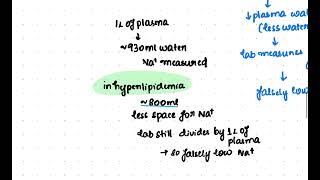 1L of plasma
↓
~930ml water
Na⁺ measured
in hyperlipidemia
~800ml
less space for Na⁺
lab still divides by 1L of
plasma
→ so falsely low Na⁺
↓
↓ plasma wat
(less water
↓
lab measures
↓
falsely low